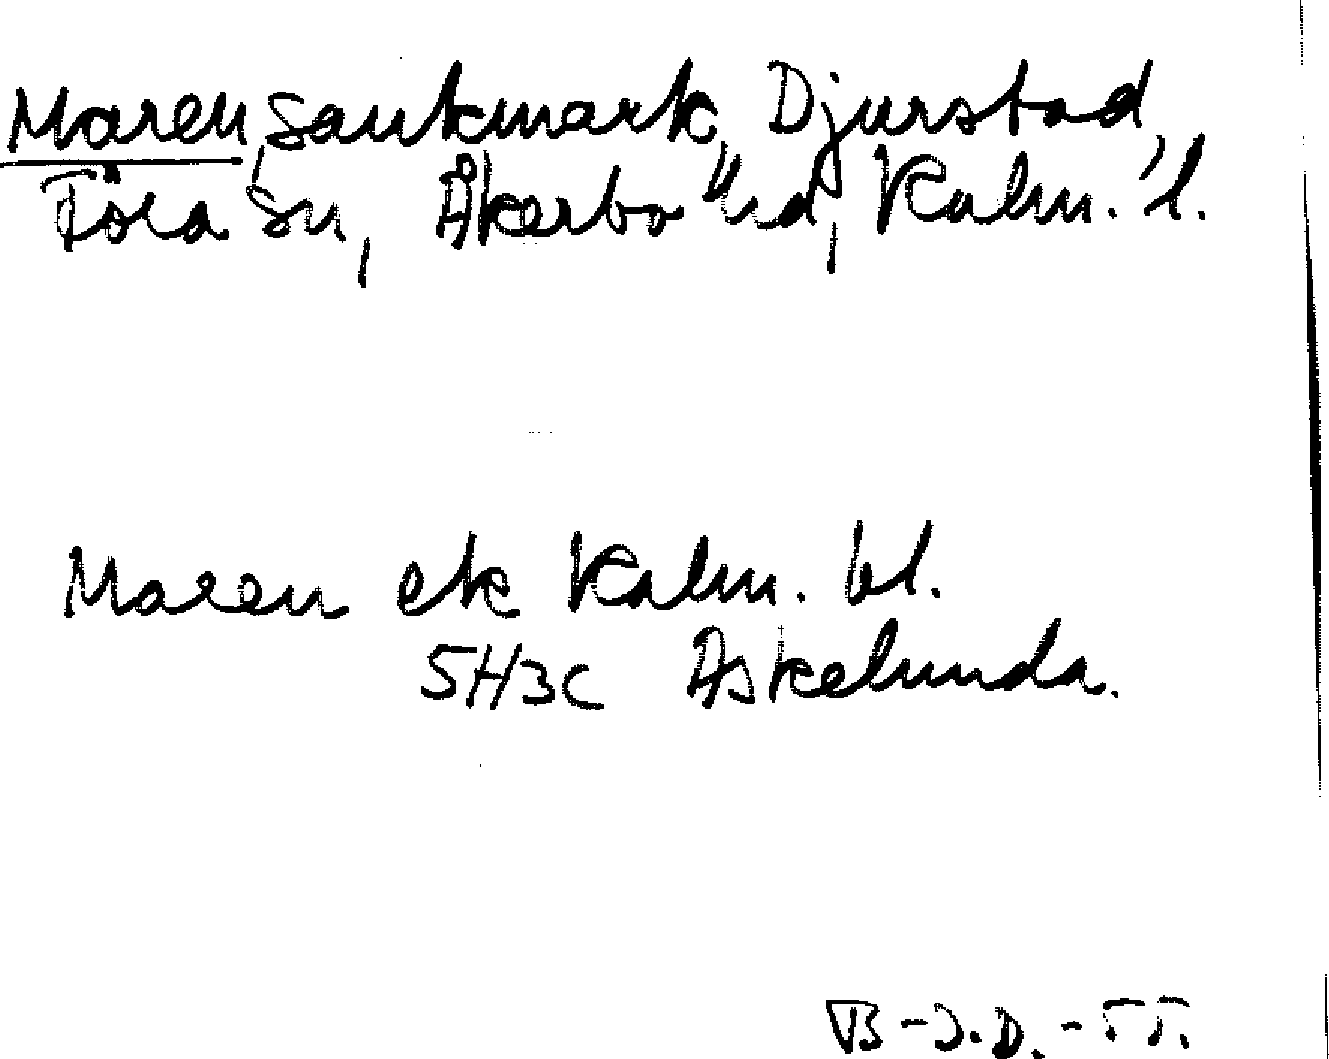 Maren, sankmark, Djurstad,
Föra sn, Åkerbo hd, Kalm. l.
Maren ek Kalm. bl.
5H3C Askelunda.
B-J.D.-55.